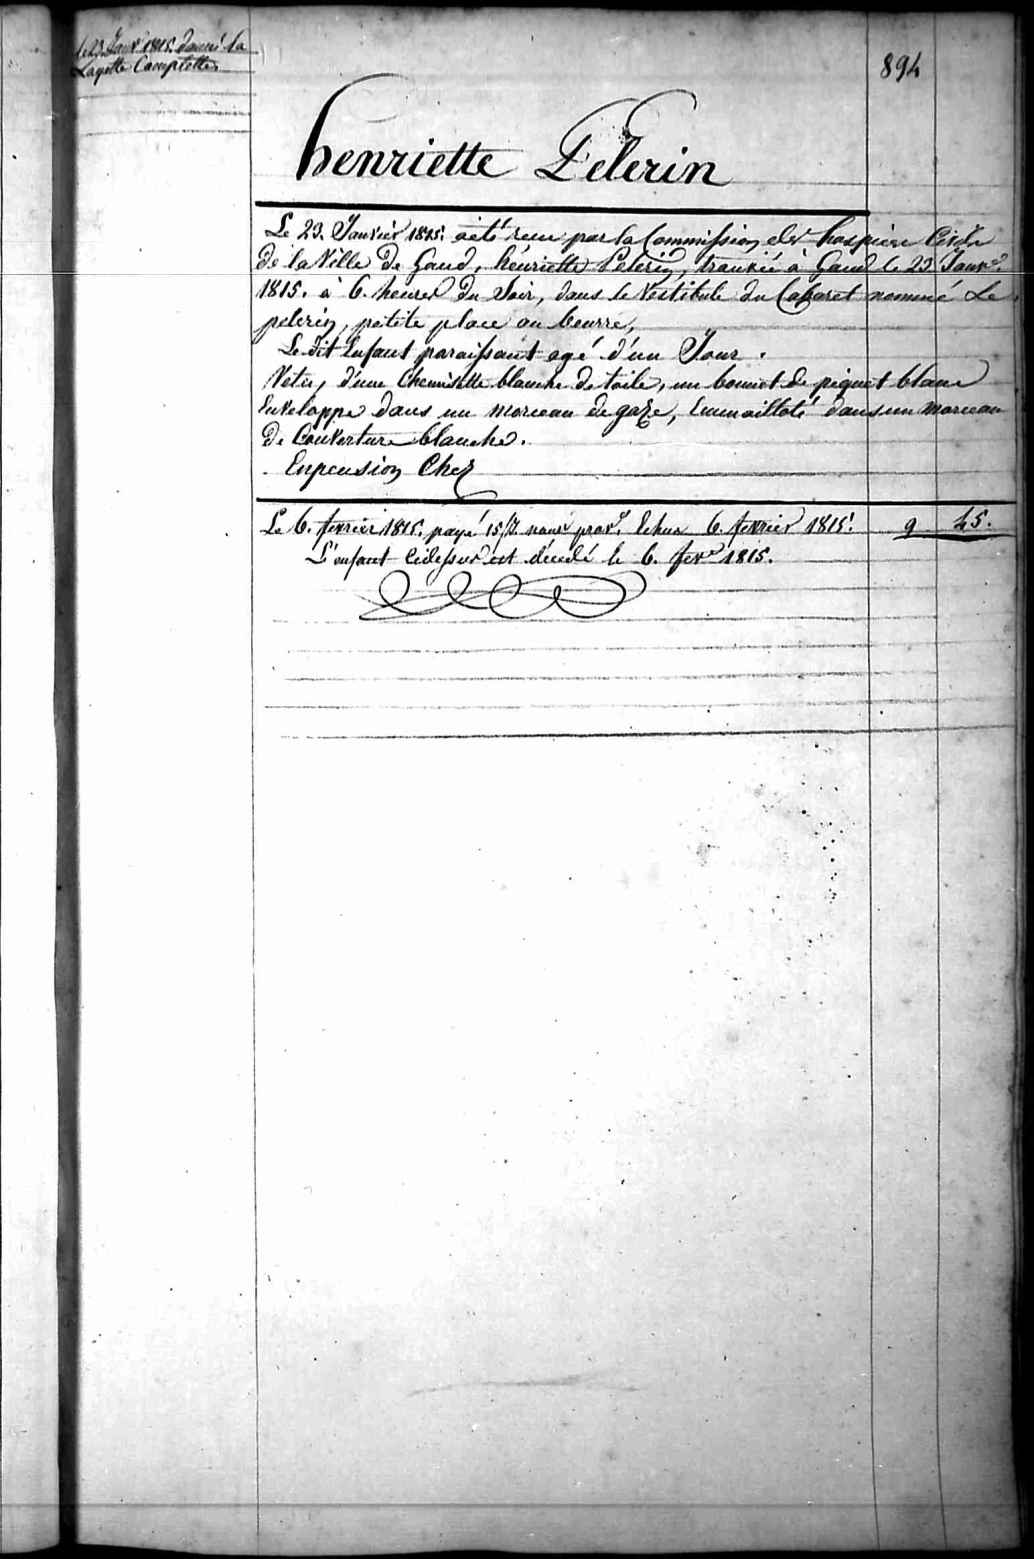 le 23 Janvr 1815. donné la
Layette Complette.
894
henriette Pelerin
Le 23. Janvier 1815. a été recu par la Commission des hospices Civils
de la Ville de Gand, henriette Pelerin, trouvée à Gand le 23 Janvr.
1815. à 6. heures du Soir, dans le Vestibule du Cabaret nommé Le
pelerin, petite place au beurre,
Le dit Enfant paraissant agé d'un Jour.
Vetu, d'une Chemisette blanche de toile, un bonnet de piquet blanc
Enveloppé dans un morceau de gaze, Emmailloté dans un morceau
de Couverture blanche.
En pension Chez
Le 6. fevrier 1815. payé 15/7. nour Echus 6. fevrier 1815. 9 45.
L'enfant Cidessus est décédé le 6. fevr 1815.